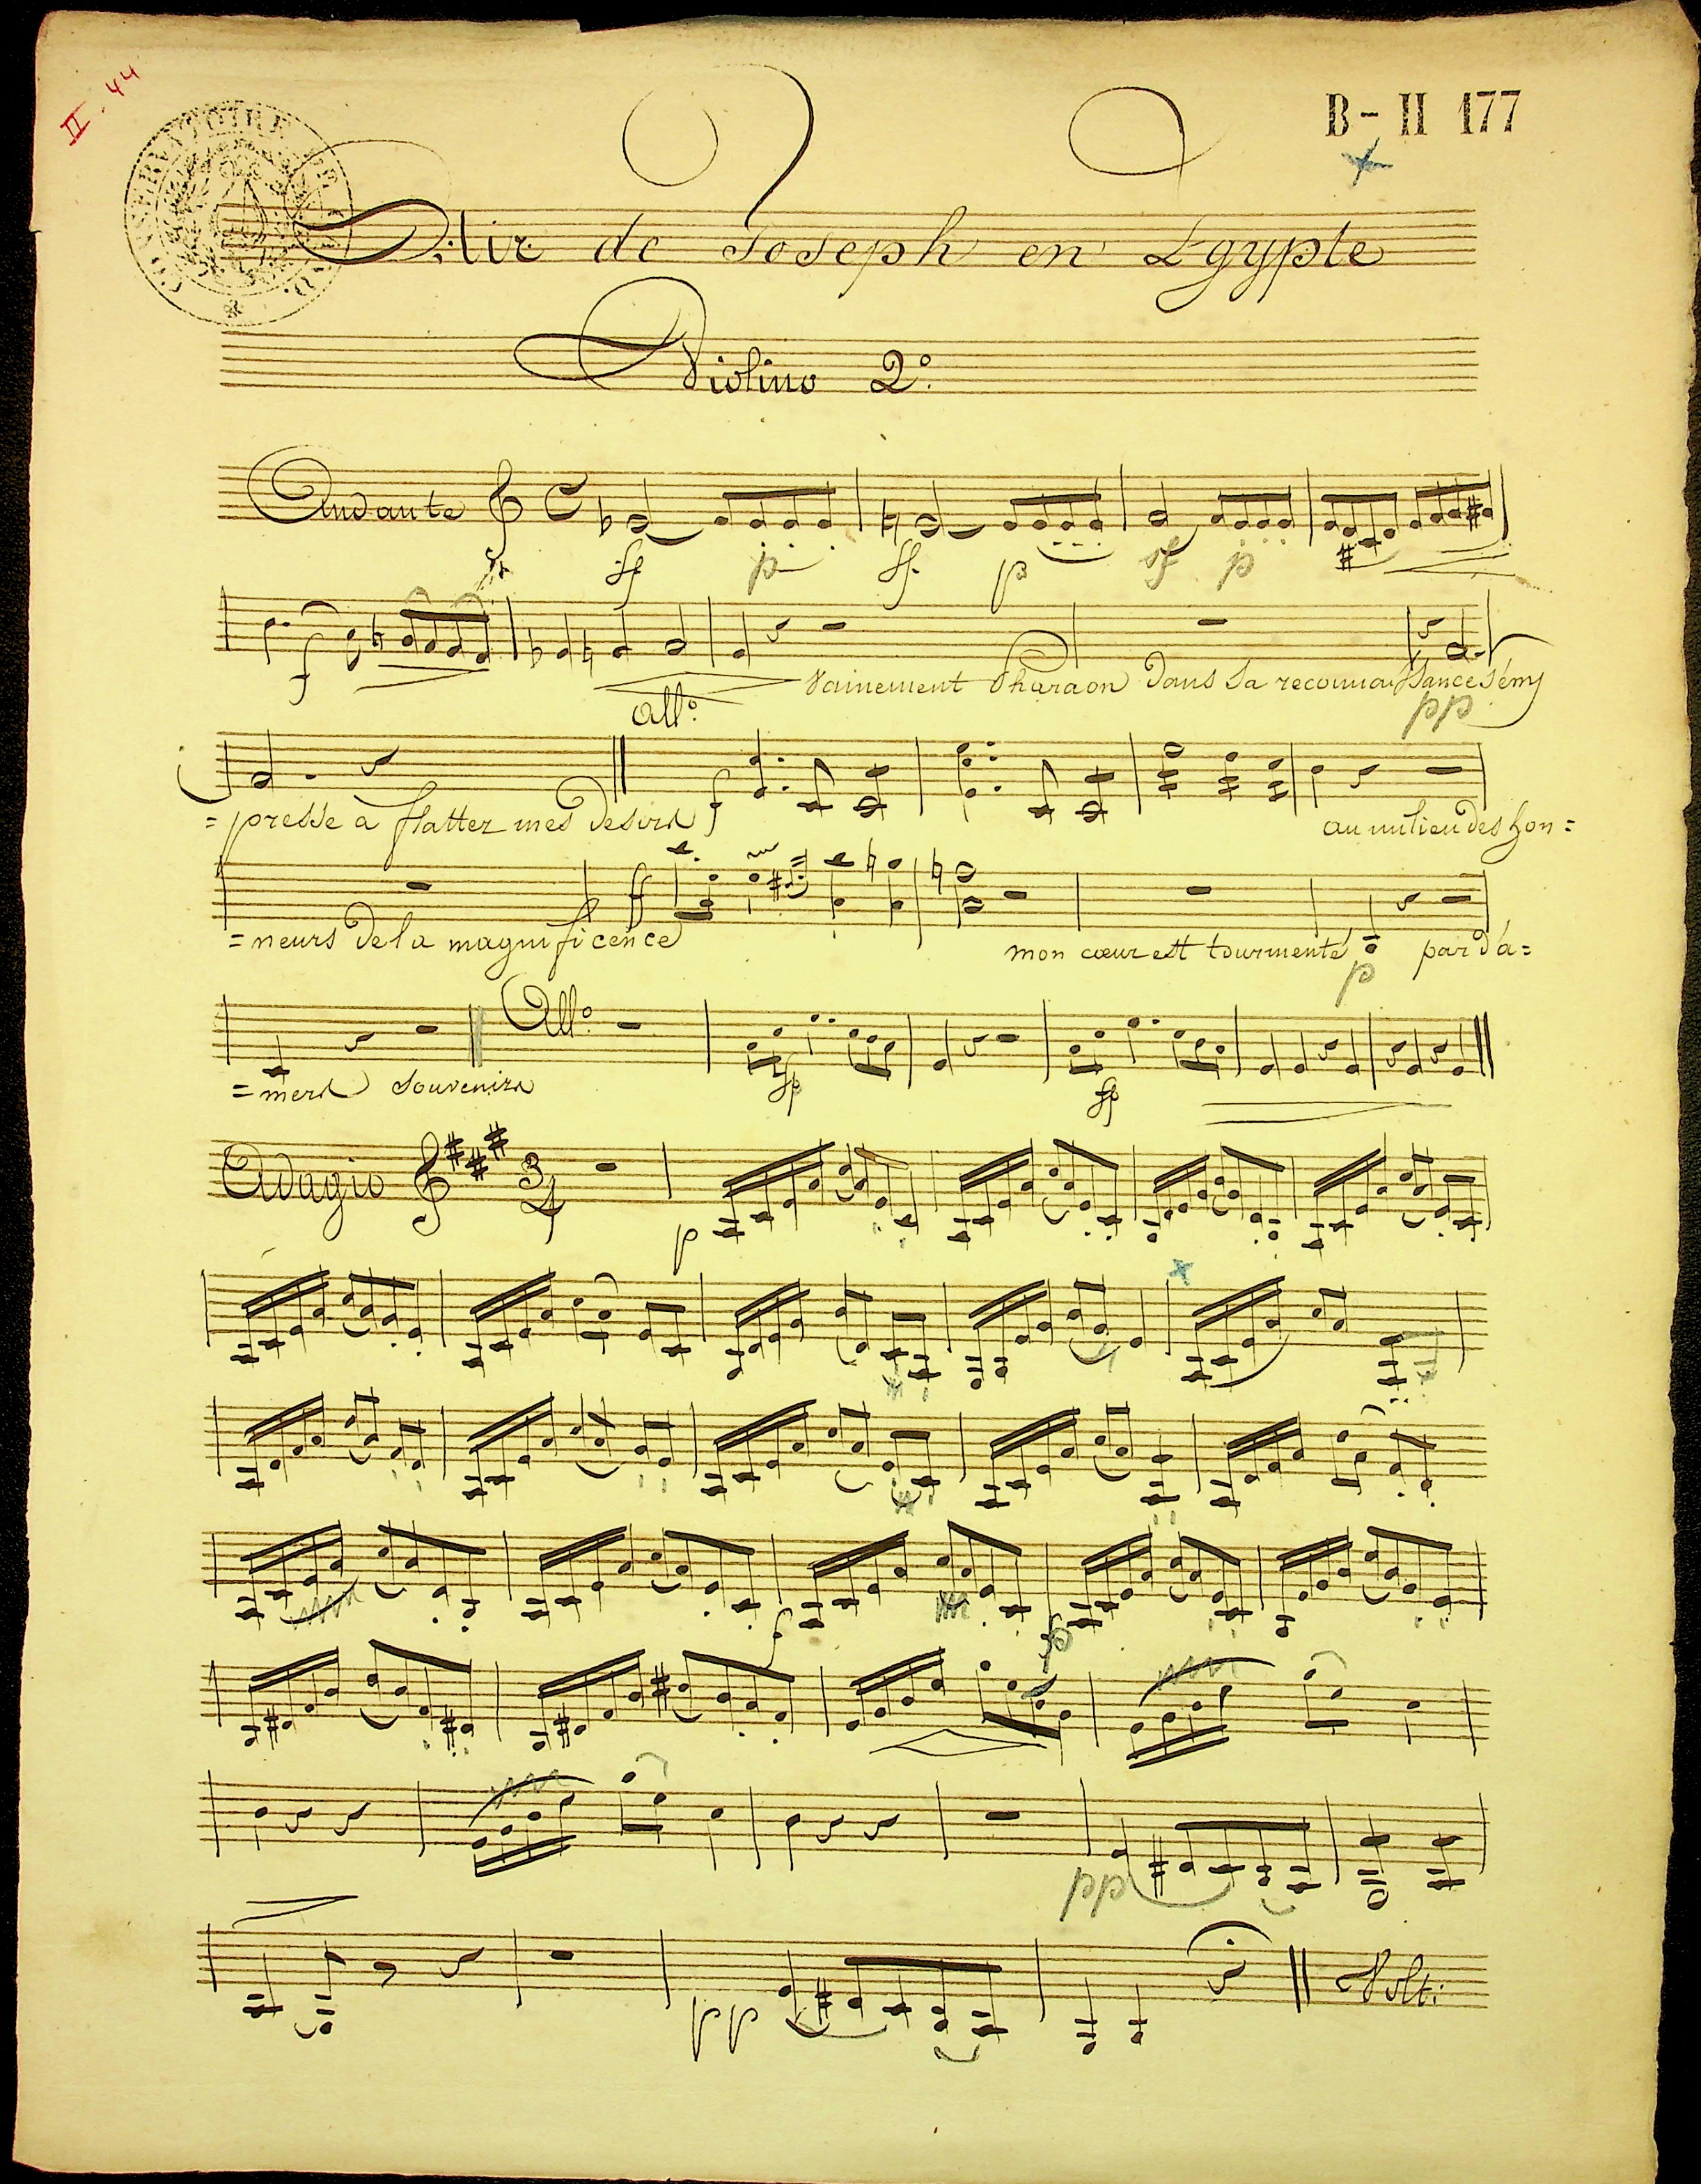 II. 44
B - II 177
CONSERVATOIRE
Air de Joseph en Egypte
Violino 2º.
Andante C
sf p sf. p sf p
f
Vainement Pharaon Dans Sa reconnaissance S'em
pp
all.º
=presse à flatter mes desirs f
au milieu des hon=
ff
=neurs de la magnificence
mon cœur est tourmenté par d'a=
p
All.º
=mers Souvenirs
fp fp
Adagio 3/4
p
f fp
pp
pp Volti